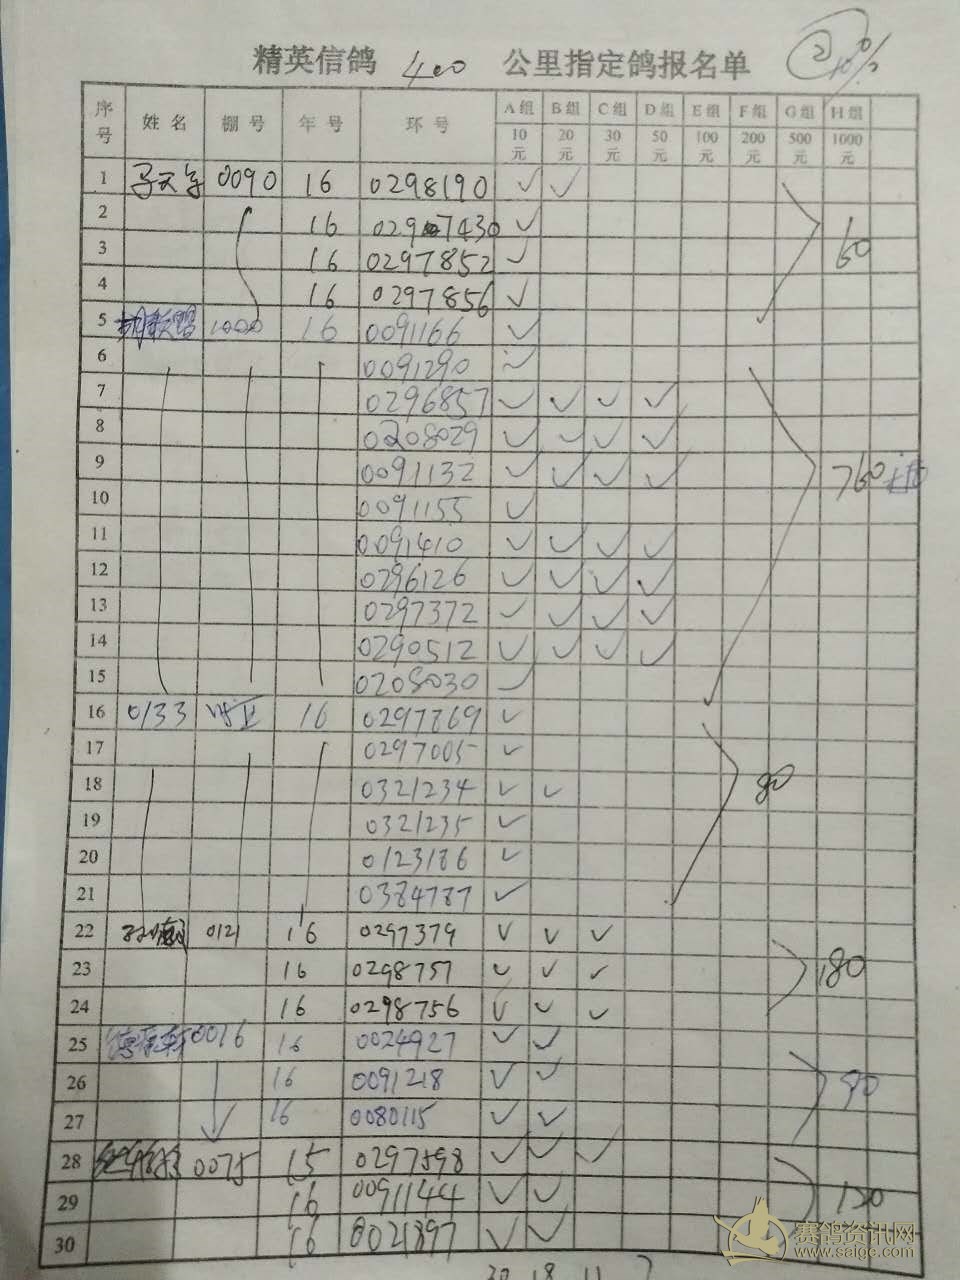 精英信鸽 400 公里指定鸽报名单 ② 10%
序号 姓名 棚号 年号 环号 A组 B组 C组 D组 E组 F组 G组 H组
10元 20元 30元 50元 100元 200元 500元 1000元
1 0090 16 0298190 ✓ ✓
2 16 0297430 ✓
3 16 0297852 ✓ 60
4 16 0297856 ✓
5 1000 16 0091166 ✓
6 0091290 ✓
7 0296857 ✓ ✓ ✓ ✓
8 0208029 ✓ ✓ ✓ ✓
9 0091132 ✓ ✓ ✓ ✓ 760
10 0091155 ✓
11 0091410 ✓ ✓ ✓ ✓
12 0296126 ✓ ✓ ✓ ✓
13 0297372 ✓ ✓ ✓ ✓
14 0290512 ✓ ✓ ✓ ✓
15 0208030 ✓
16 0133 16 0297769 ✓
17 0297005 ✓
18 0321234 ✓ ✓ 80
19 0321235 ✓
20 0123186 ✓
21 0384787 ✓
22 0121 16 0297379 ✓ ✓ ✓
23 16 0298757 ✓ ✓ ✓ 180
24 16 0298756 ✓ ✓ ✓
25 0016 16 0024927 ✓ ✓
26 16 0091218 ✓ ✓ 90
27 16 0080115 ✓ ✓
28 0075 15 0297598 ✓ ✓ ✓
29 16 0091144 ✓ ✓ 120
30 16 0021897 ✓ ✓
赛鸽资讯网
www.saigc.com
30 18 11 7